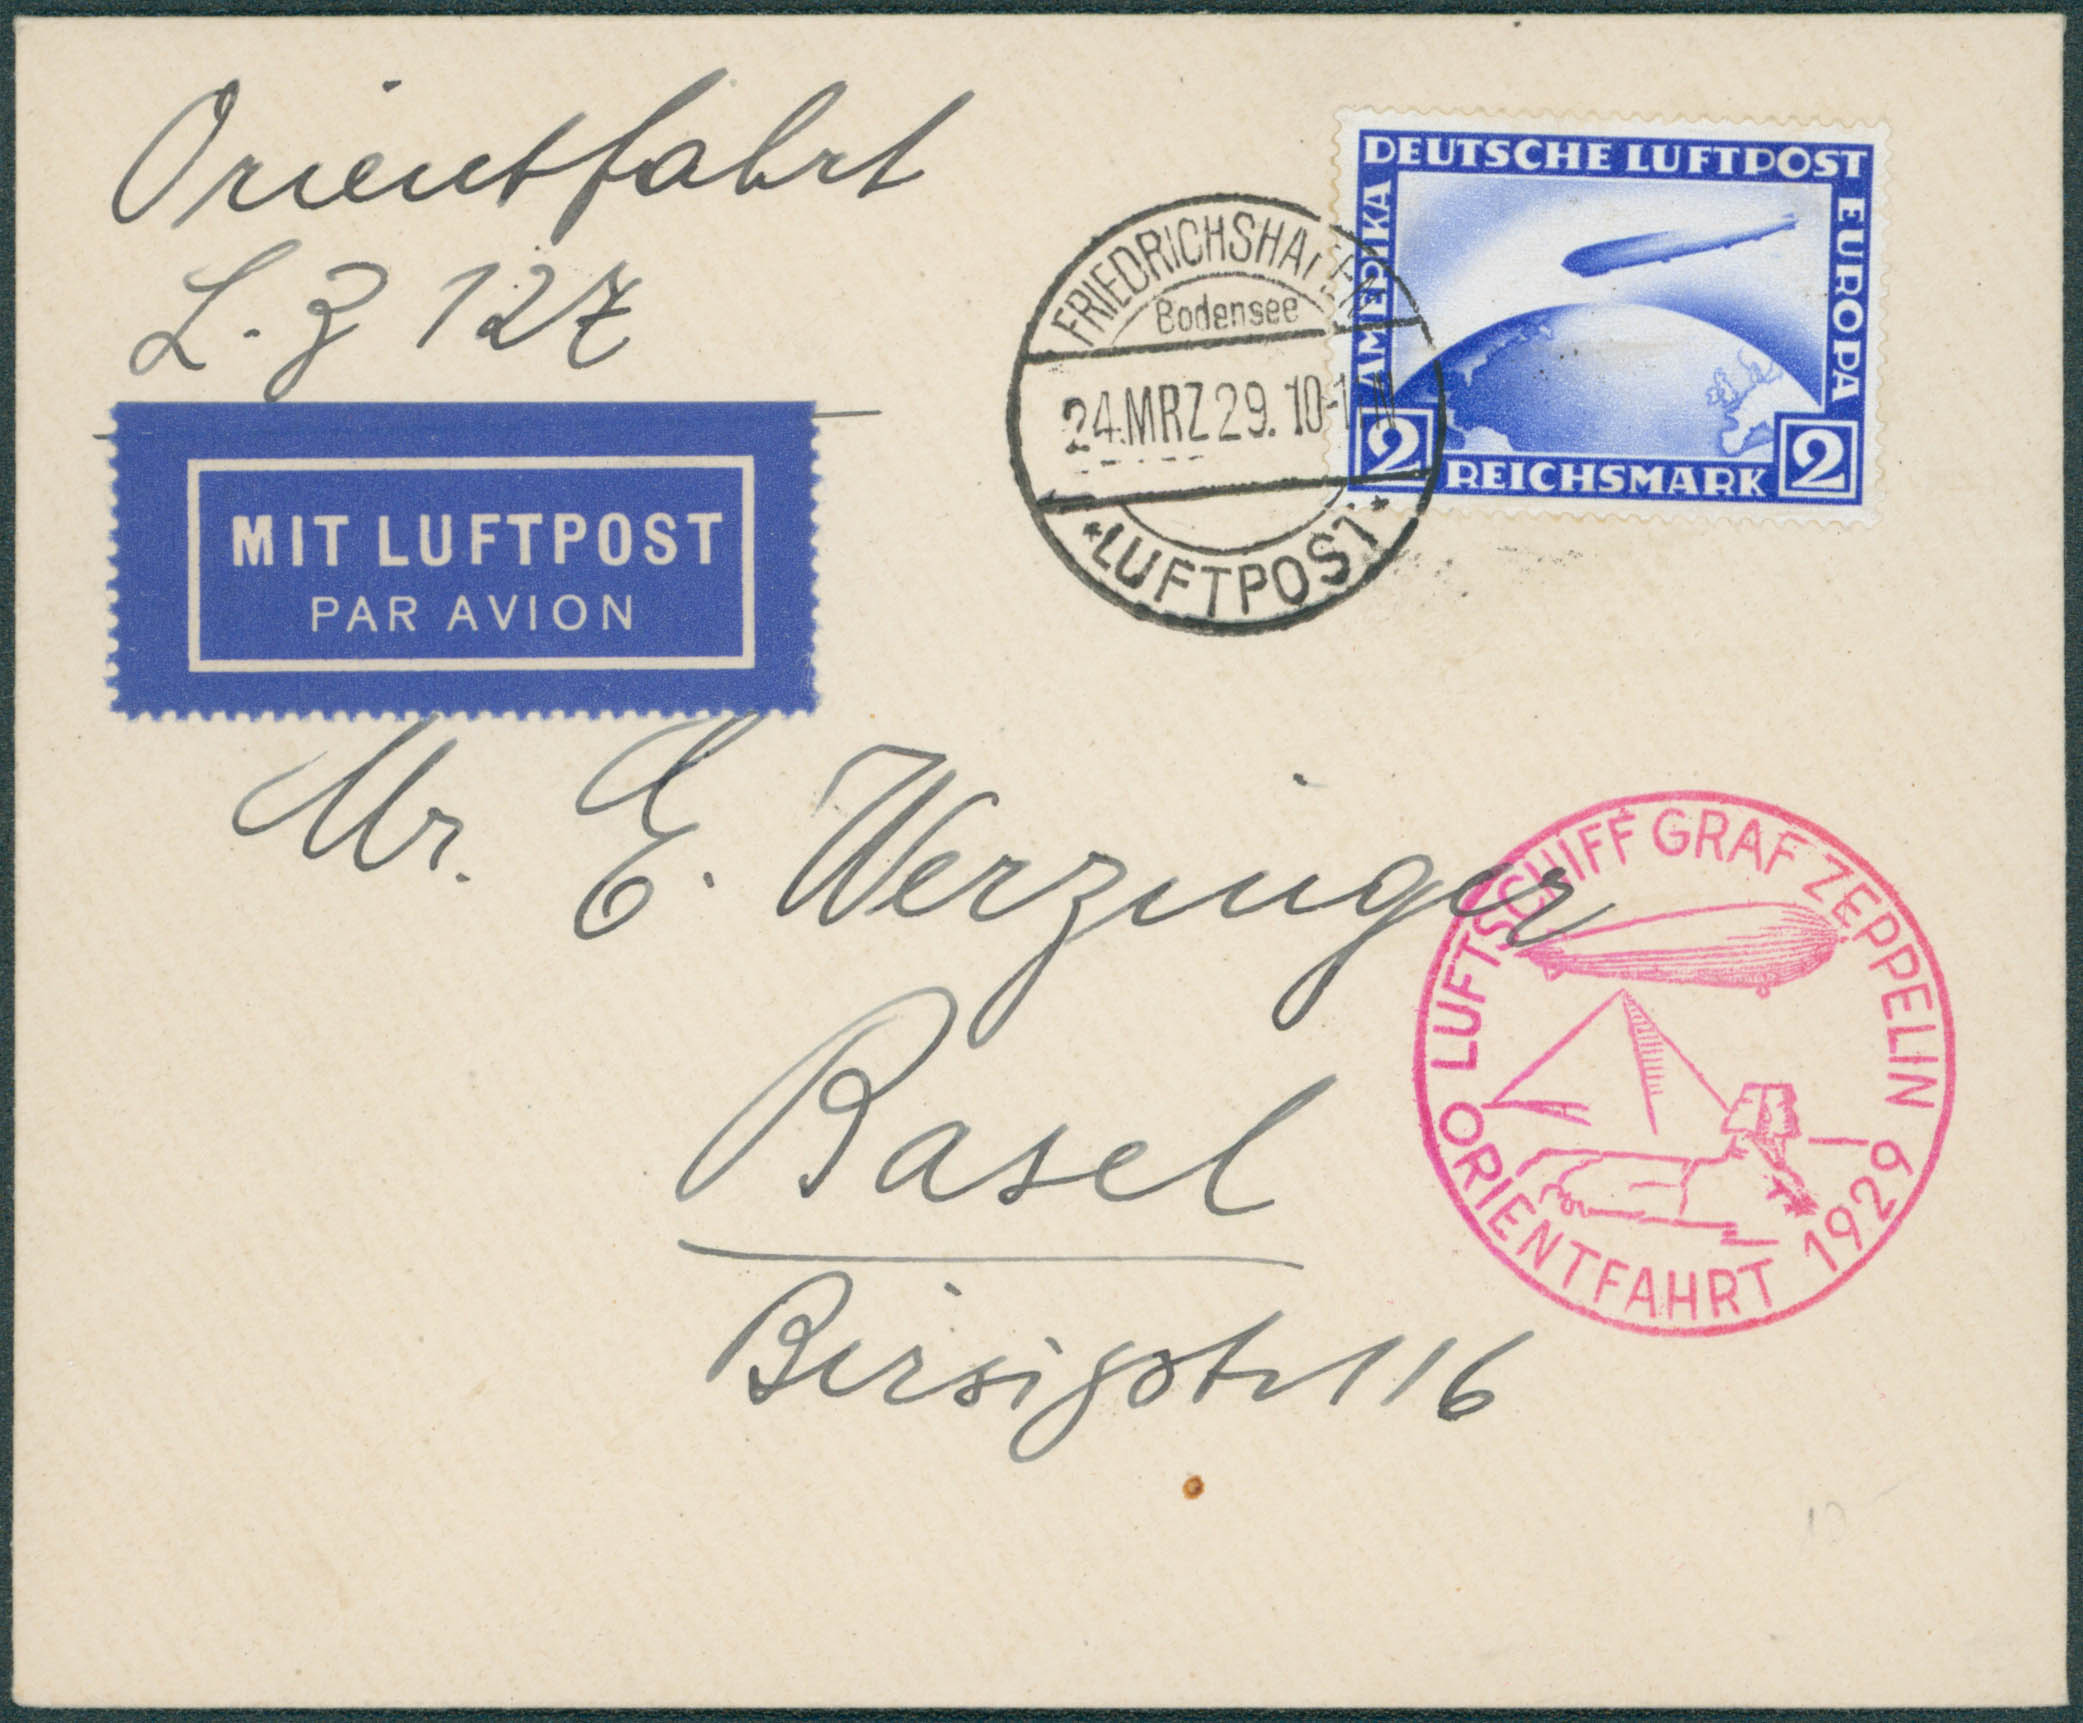 Orientfahrt
L. Z 127
MIT LUFTPOST
PAR AVION
FRIEDRICHSHAFEN
Bodensee
24.MRZ 29. 10-
* LUFTPOST *
DEUTSCHE LUFTPOST
AMERIKA
EUROPA
2 REICHSMARK 2
Mr. E. Werzinger
Basel
Birsigstr 116
LUFTSCHIFF GRAF ZEPPELIN
ORIENTFAHRT 1929